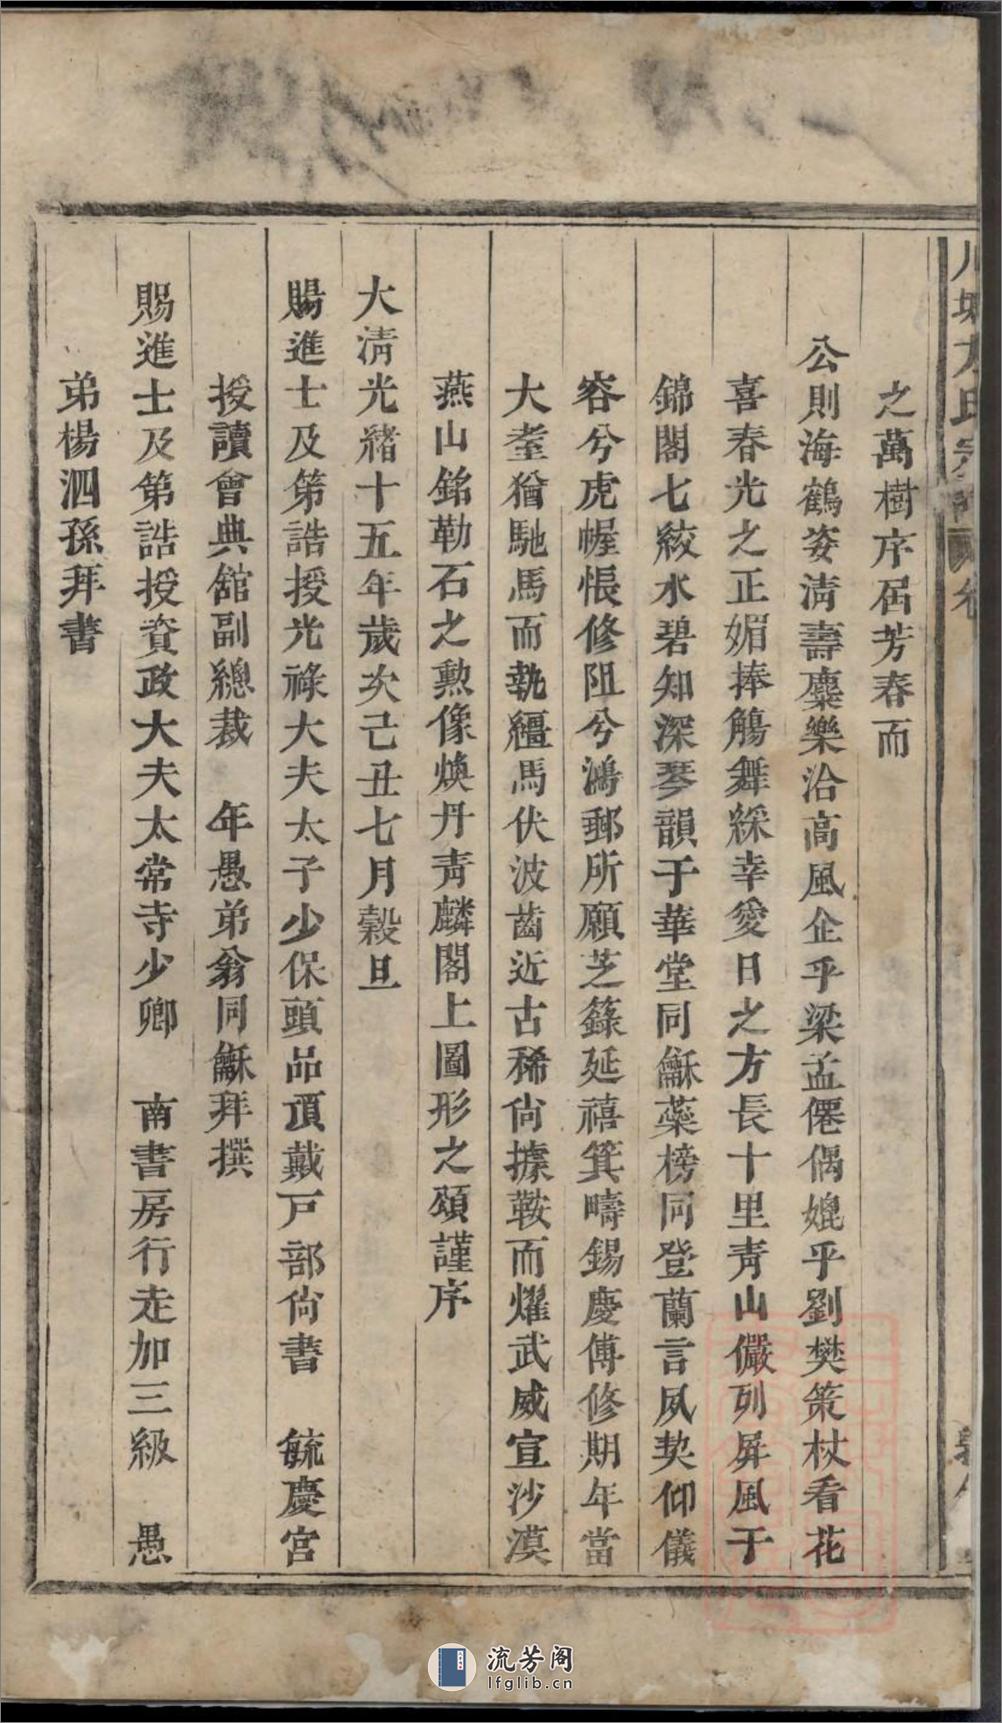 之萬樹序屆芳春而
公則海鶴姿清壽麋樂洽高風企乎梁孟僊偶媲乎劉樊策杖看花
喜春光之正媚捧觴舞綵幸愛日之方長十里青山儼列屏風于
錦閣七絃水碧知深琴韻于華堂同龢蘂榜同登蘭言夙契仰儀
容兮虎幄悵修阻兮鴻郵所願芝籙延禧箕疇錫慶傅修期年當
大耋猶馳馬而執繮馬伏波齒近古稀尚據鞍而燿武威宣沙漠
燕山銘勒石之勲像煥丹青麟閣上圖形之頌謹序
大清光緒十五年歲次己丑七月穀旦
賜進士及第誥授光祿大夫太子少保頭品頂戴戸部尚書　毓慶宮
授讀會典舘副總裁　年愚弟翁同龢拜撰
賜進士及第誥授資政大夫太常寺少卿　南書房行走加三級　愚
弟楊泗孫拜書
流芳阁
lfglib.cn